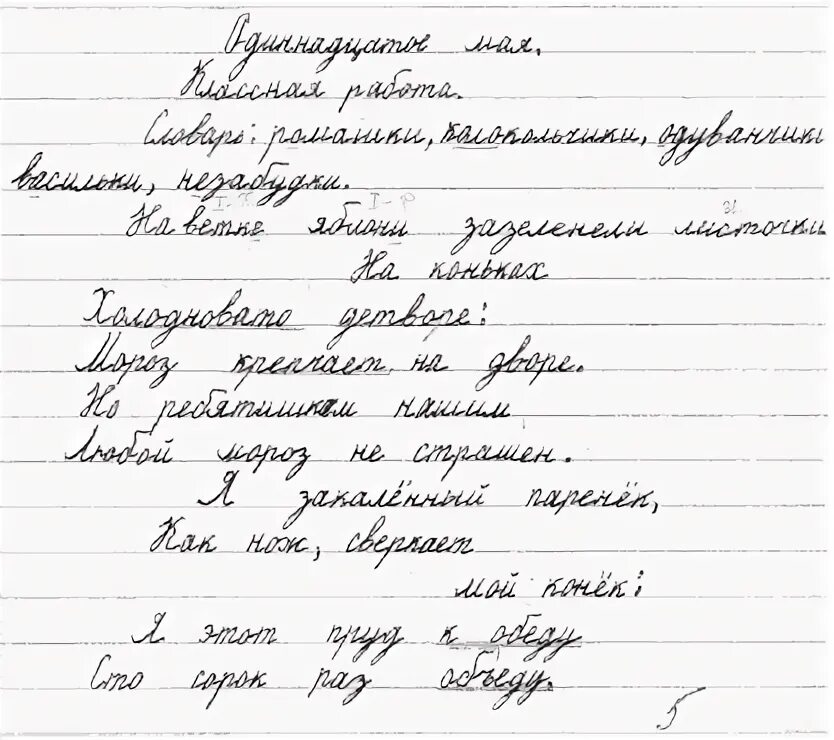 Одиннадцатое мая.
Классная работа.
Словарь: ромашки, колокольчики, одуванчики
васильки, незабудки.
На ветке яблони зазеленели листочки
На коньках
Холодновато детворе:
Мороз крепчает на дворе.
Но ребятишкам нашим
Любой мороз не страшен.
Я закалённый паренёк,
Как нож, сверкает
мой конёк:
Я этот пруд к обеду
Сто сорок раз объеду.
5